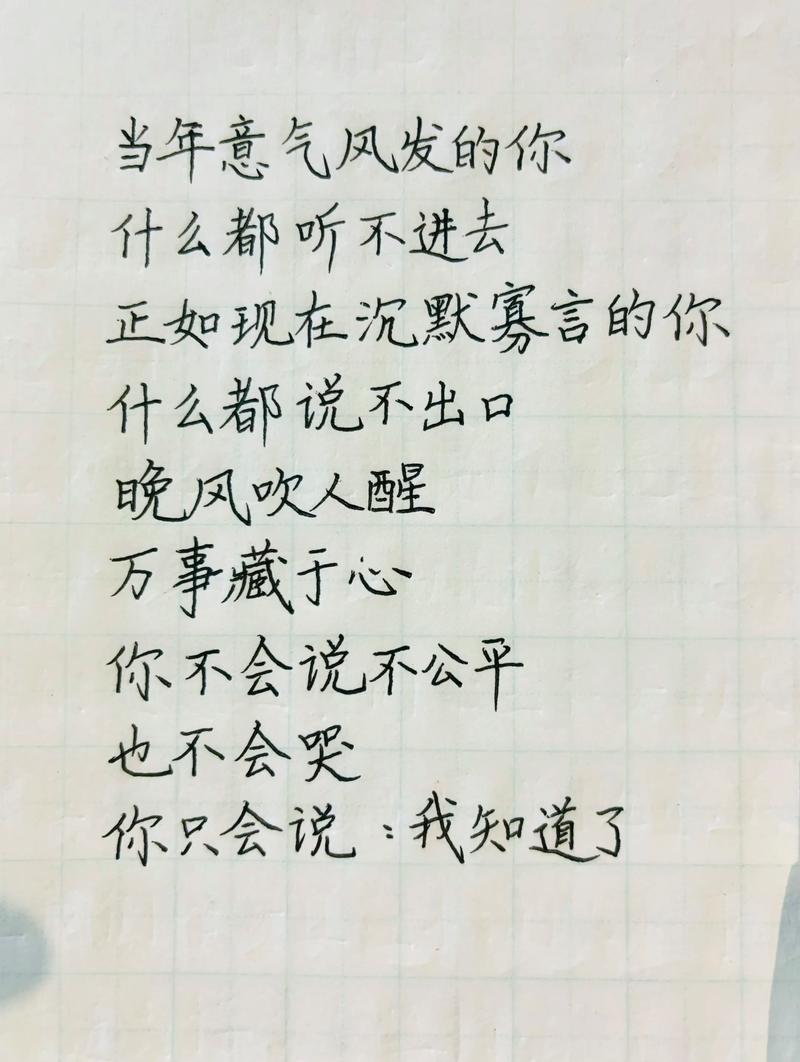 当年意气风发的你
什么都听不进去
正如现在沉默寡言的你
什么都说不出口
晚风吹人醒
万事藏于心
你不会说不公平
也不会哭
你只会说:我知道了